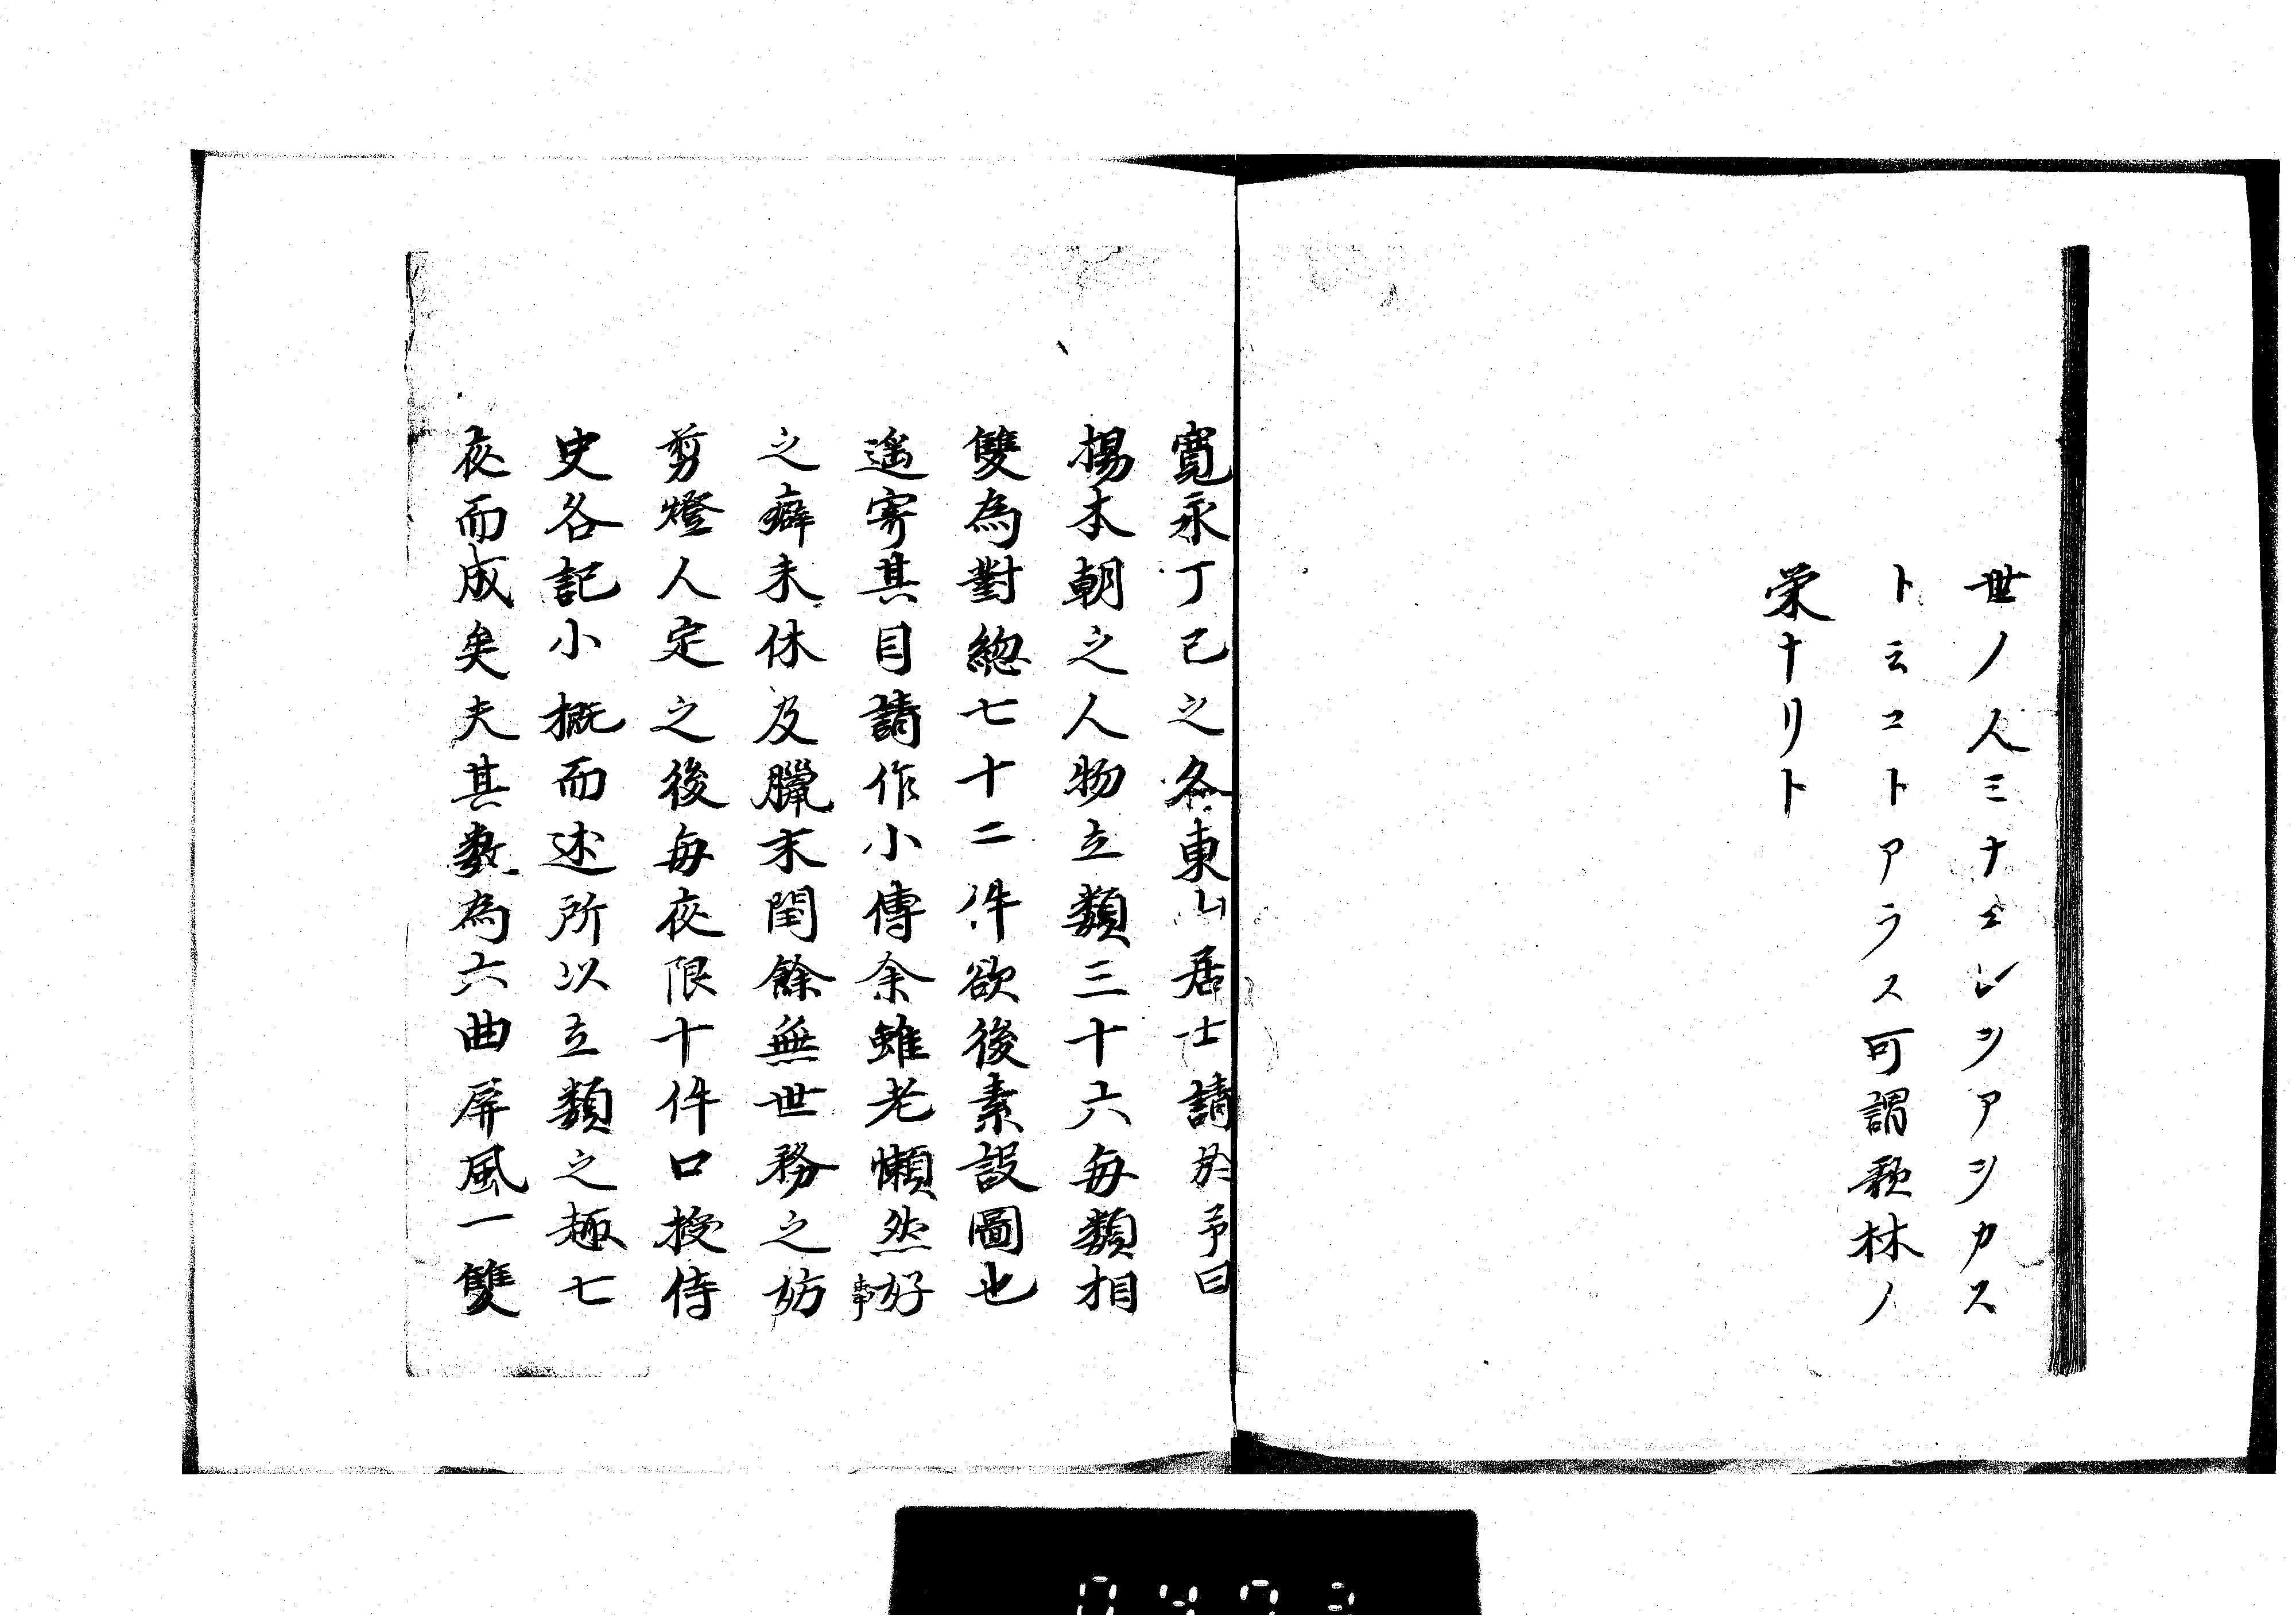 世ノ人ミナヱレヲアヲカス
ト云コトアラス可謂歌林ノ
栄ナリト
寛永丁已之冬東山居士請於予曰
揚本朝之人物立類三十六毎類相
雙為對總七十二件欲後素設圖也
遥寄其目請作小傳余雖老懶然好事
之癖未休及臘末閏餘無世務之妨
剪燈人定之後毎夜限十件口授侍
史各記小概而述所以立類之趣七
夜而成矣夫其數為六曲屏風一雙